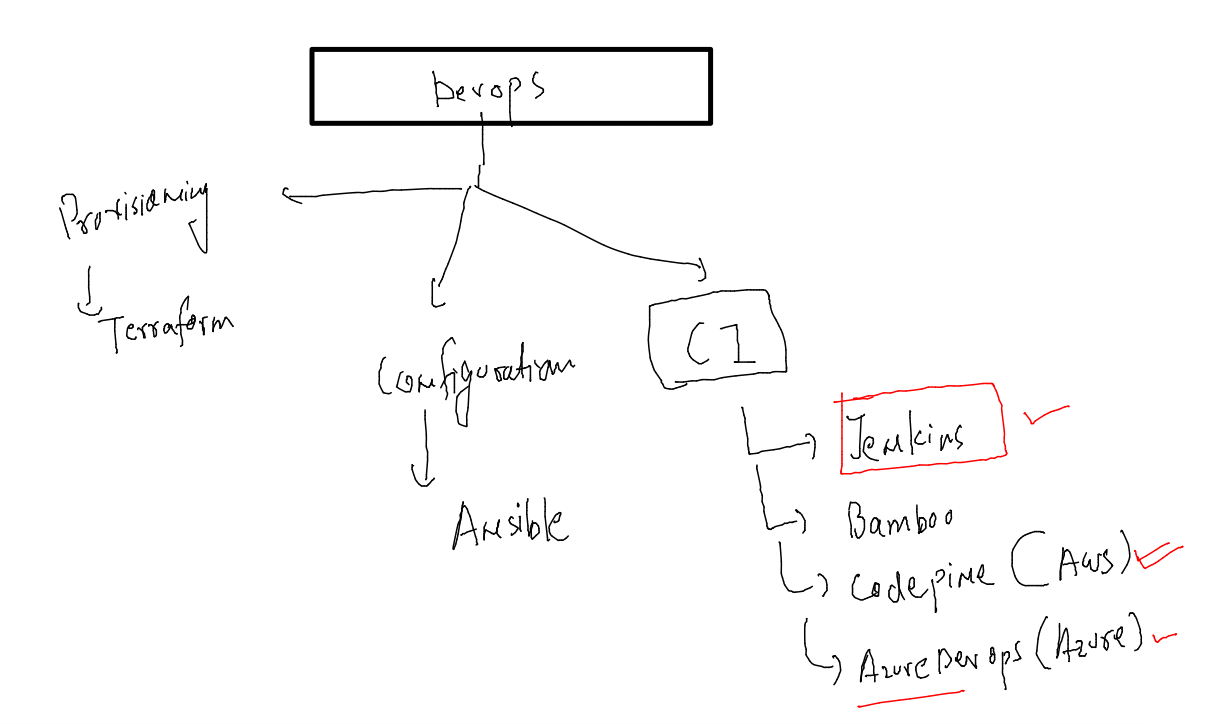 Devops
Provisioning
Terraform
Configuration
Ansible
CI
Jenkins
Bamboo
Codepine (Aws)
AzureDevops (Azure)